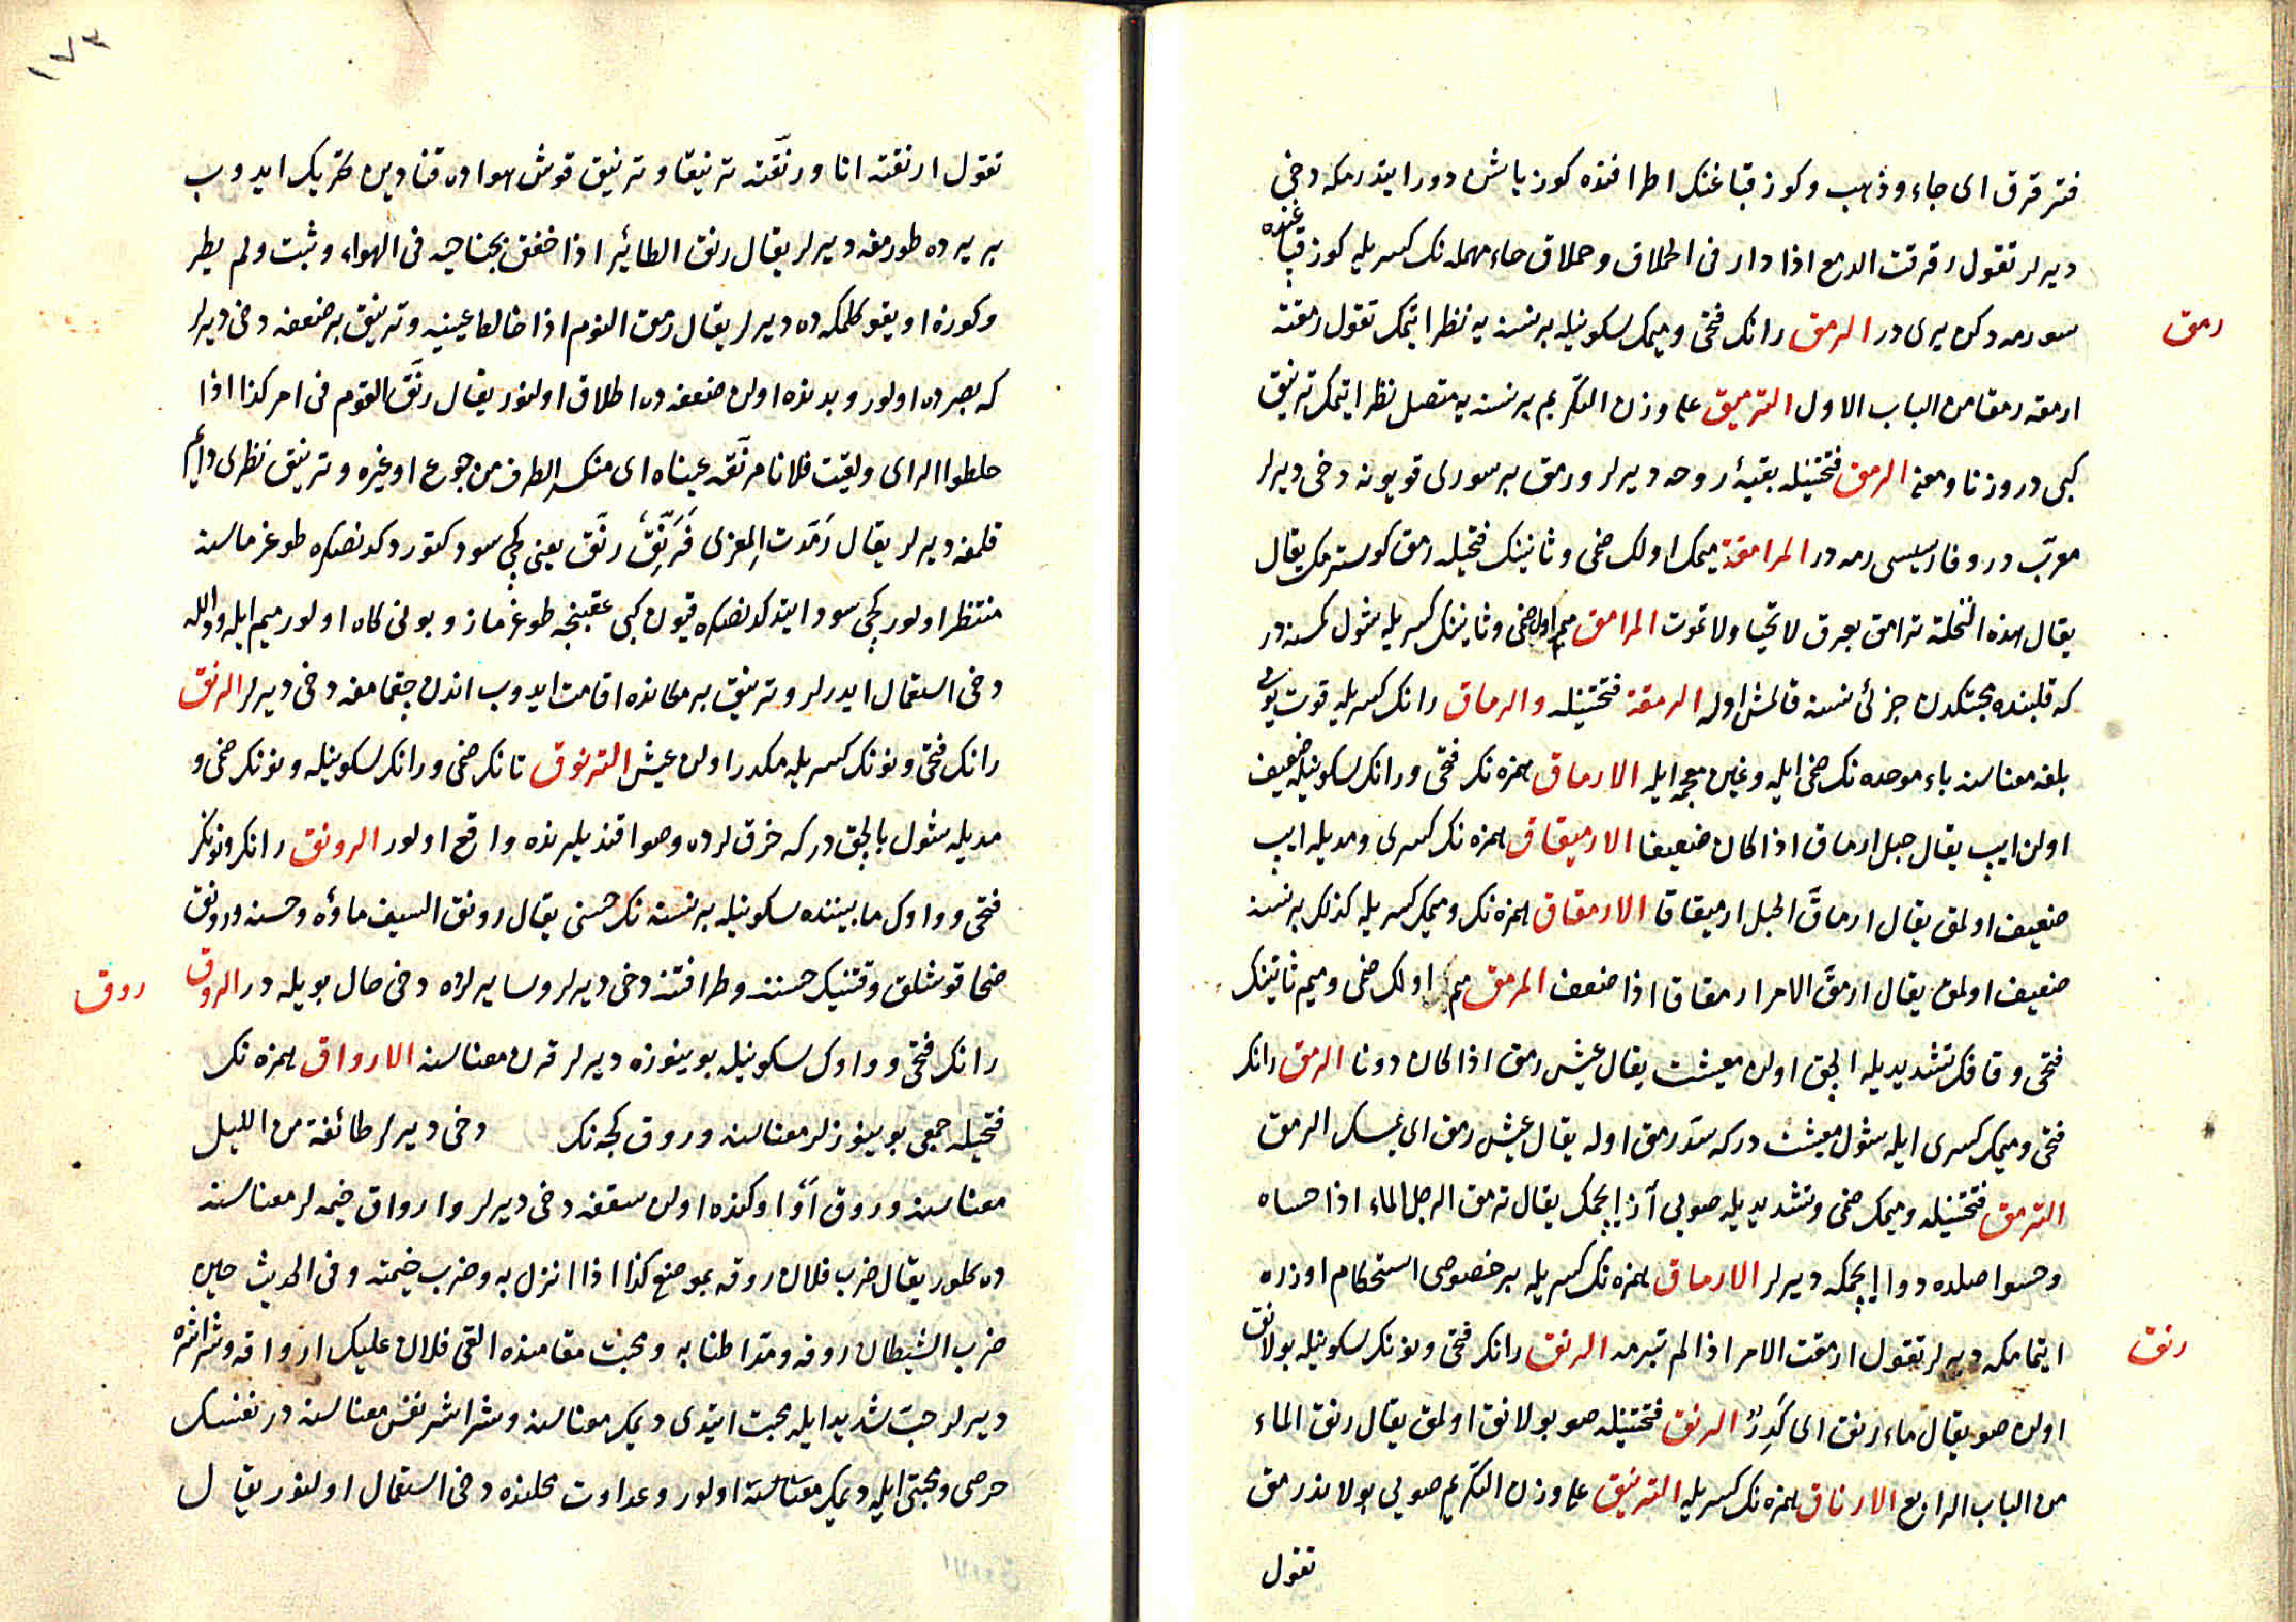 فترقرق اى جاء وذهب وكوز قپاغنك اطرافنده كوز ياشن دورايتدرمكه دخى
ديرلر تقول رقرقت الدمع اذا دار فى الحملاق وحملاق حاء مهمله نك كسريله كوز قپاغنده
سورمه دكن يرى در الرمق رانك فتحى وميمك سكونيله برنسنه يه نظر ايتمك تقول رمقته
رمق
ارمقه رمقا من الباب الاول الترميق على وزن التكريم برنسنه يه متصل نظر ايتمك ترنيق
كبى در وزنا ومعنى الرمق فتحتيله بقيهٔ روحه ديرلر ورمق بر سورى قويونه دخى ديرلر
معرّب در وفارسيسى رمه در المرامقة ميمك اولك ضمى وثانينك فتحيله رمق كوسترمك يقال
يقال هذه النخلة ترامق بعرق لا تحيا ولا تموت المرامق ميم اولك ضمى وثانينك كسريله شول كمسنه در
كه قلبنده محبتكدن جزئى نسنه قالمش اوله الرمقة فتحتيله والرماق رانك كسريله قوت يوملى
بلغه معناسنه باء موحده نك ضمى ايله وغين معجمه ايله الارماق همزه نك فتحى ورانك سكونيله ضعيف
اولن ايپ يقال حبل ارماق اذا كان ضعيفا الارميقاق همزه نك كسرى ومديله ايپ
ضعيف اولمق يقال ارماقّ الحبل ارميقاقا الارمقاق همزه نك وميمك كسريله كذلك برنسنه
ضعيف اولمق يقال ارمقّ الامر ارمقاقا اذا ضعف المرمق ميم اولك ضمى وميم ثانينك
فتحى وقافك تشديديله الچق اولن معيشت يقال عيش رمق اذا كان دونا الرمق رانك
فتحى وميمك كسرى ايله شول معيشت در كه سدّ رمق اوله يقال عيش رمق اى يمسك الرمق
الترمق فتحتيله وميمك ضمى وتشديديله صويى آز ايچمك يقال ترمق الرجل الماء اذا حساه
وحسوا صلده دوا ايچمكه ديرلر الارماق همزه نك كسريله بر خصوصى استحكام اوزره
ايتمامكه ديرلر تقول ارمقت الامر اذا لم تبرمه الرنق رانك فتحى ونونك سكونيله بولانق
رنق
اولن صو يقال ماء رنق اى كَدِرٌ الرنق فتحتيله صو بولانق اولمق يقال رنق الماء
من الباب الرابع الارناق همزه نك كسريله الترنيق على وزن التكريم صويى بولاندرمق
تقول
١٧٣
تقول ارنقته انا ورنّقته ترنيقا وترنيق قوش هواده قنادين تحريك ايدوب
بر يرده طورمغه ديرلر يقال رنق الطائر اذا خفق بجناحيه فى الهواء وثبت ولم يطر
وكوزه اويقو كلمكه ده ديرلر يقال رمق النوم اذا خالط عينيه وترنيق بر ضعفه دخى ديرلر
كه بصرده اولور وبدنده اولن ضعفه ده اطلاق اولنور يقال رنّق القوم فى امر كذا اذا
خلطوا الراى ولقيت فلانا مرنّقه عيناه اى منكسر الطرف من جوع او غيره وترنيق نظرى دايم
قلمغه ديرلر يقال رَمّدت المعزى فَرَنِّقْ رنّق يعنى كچى سود كتوردكدنصكره طوغرماسنه
منتظر اولور كچى سود ايتدكدنصكره قيون كبى عقبنجه طوغرماز وبونى كاه اولور ميم ايله ودال ايله
دخى استعمال ايدرلر وترنيق بر مكانده اقامت ايدوب اندن چقمامغه دخى ديرلر الرنق
رانك فتحى ونونك كسريله مكدر اولن عيش الترنوق تانك ضمى ورانك سكونيله ونونك ضمى و
مديله شول بالچق در كه خرقلرده وصو اقنديلرنده واقع اولور الرونق رانك ونونك
فتحى وواوك مابيننده سكونيله برنسنه نك حسنى يقال رونق السيف ماؤه وحسنه ورونق
ضحا قوشلق وقتنيك حسننه وطراوتنه دخى ديرلر وسايرلرده دخى حال بويله در الروق
روق
رانك فتحى وواوك سكونيله بوينوزه ديرلر قرن معناسنه الارواق همزه نك
فتحيله جمعى بوينوزلر معناسنه وروق كجه نك دخى ديرلر طائفة من الليل
معناسنه وروق اَوْ اوكنده اولن سقفه دخى ديرلر وارواق خيمه لر معناسنه
ده كلور يقال ضرب فلان روقه بموضع كذا اذا انزل به وضرب خيمته وفى الحديث حين
ضرب الشيطان روقه ومدّ اطنابه ومحبت مقامنده القى فلان عليك ارواقه وشراشره
ديرلر حبّ شديد ايله محبت ايتدى ديمك معناسنه وشراشر نفس معناسنه در نفسنك
حرص ومحبتى ايله ديمك معناسنه اولور وعداوت محلنده دخى استعمال اولنور يقال